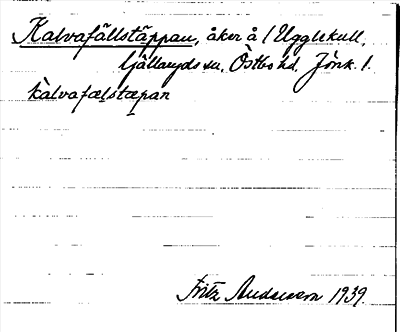 Kalvafällstäppan, åker å 1 Ugglekull,
Gällaryds sn. Östbo hd. Jönk. l.
kàlvafælstæpan
Fritz Andersson 1939.